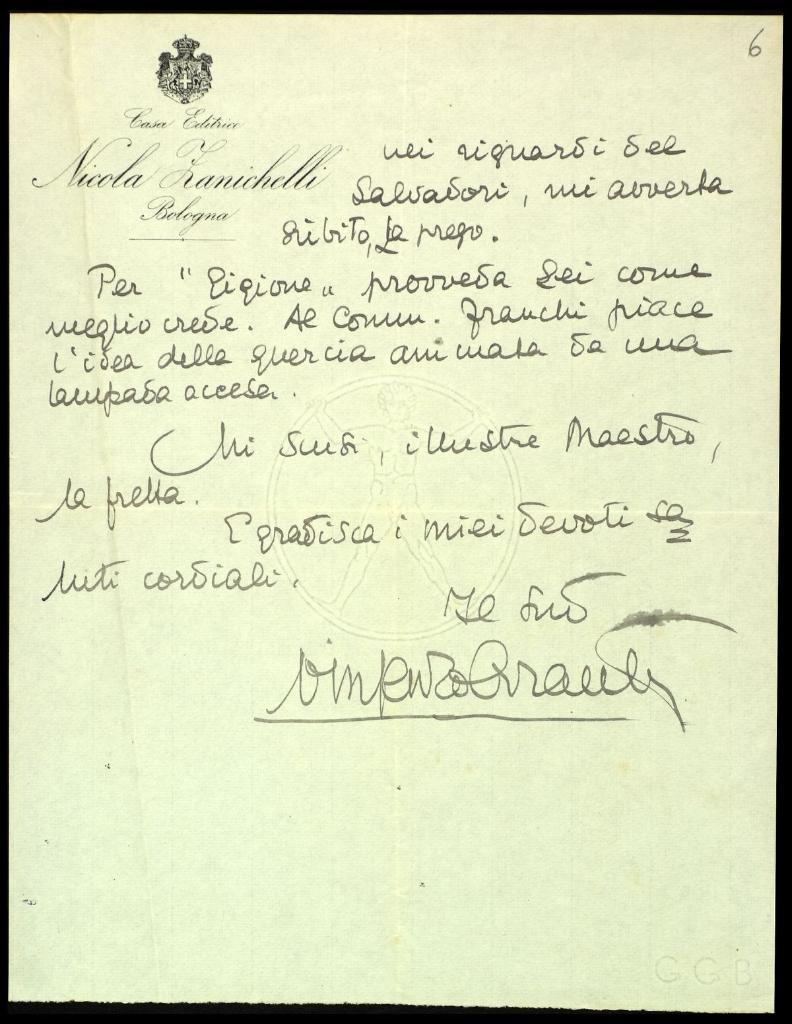 6
Casa Editrice
Nicola Zanichelli
Bologna
nei riguardi del
Salvadori, mi avverta
subito, La prego.
Per "Gigione" provveda Lei come
meglio crede. Al Comm. Franchi piace
l'idea della quercia animata da una
lampada accesa.
Mi scusi, illustre Maestro,
la fretta.
E gradisca i miei devoti sa
luti cordiali.
Il Suo
GGB